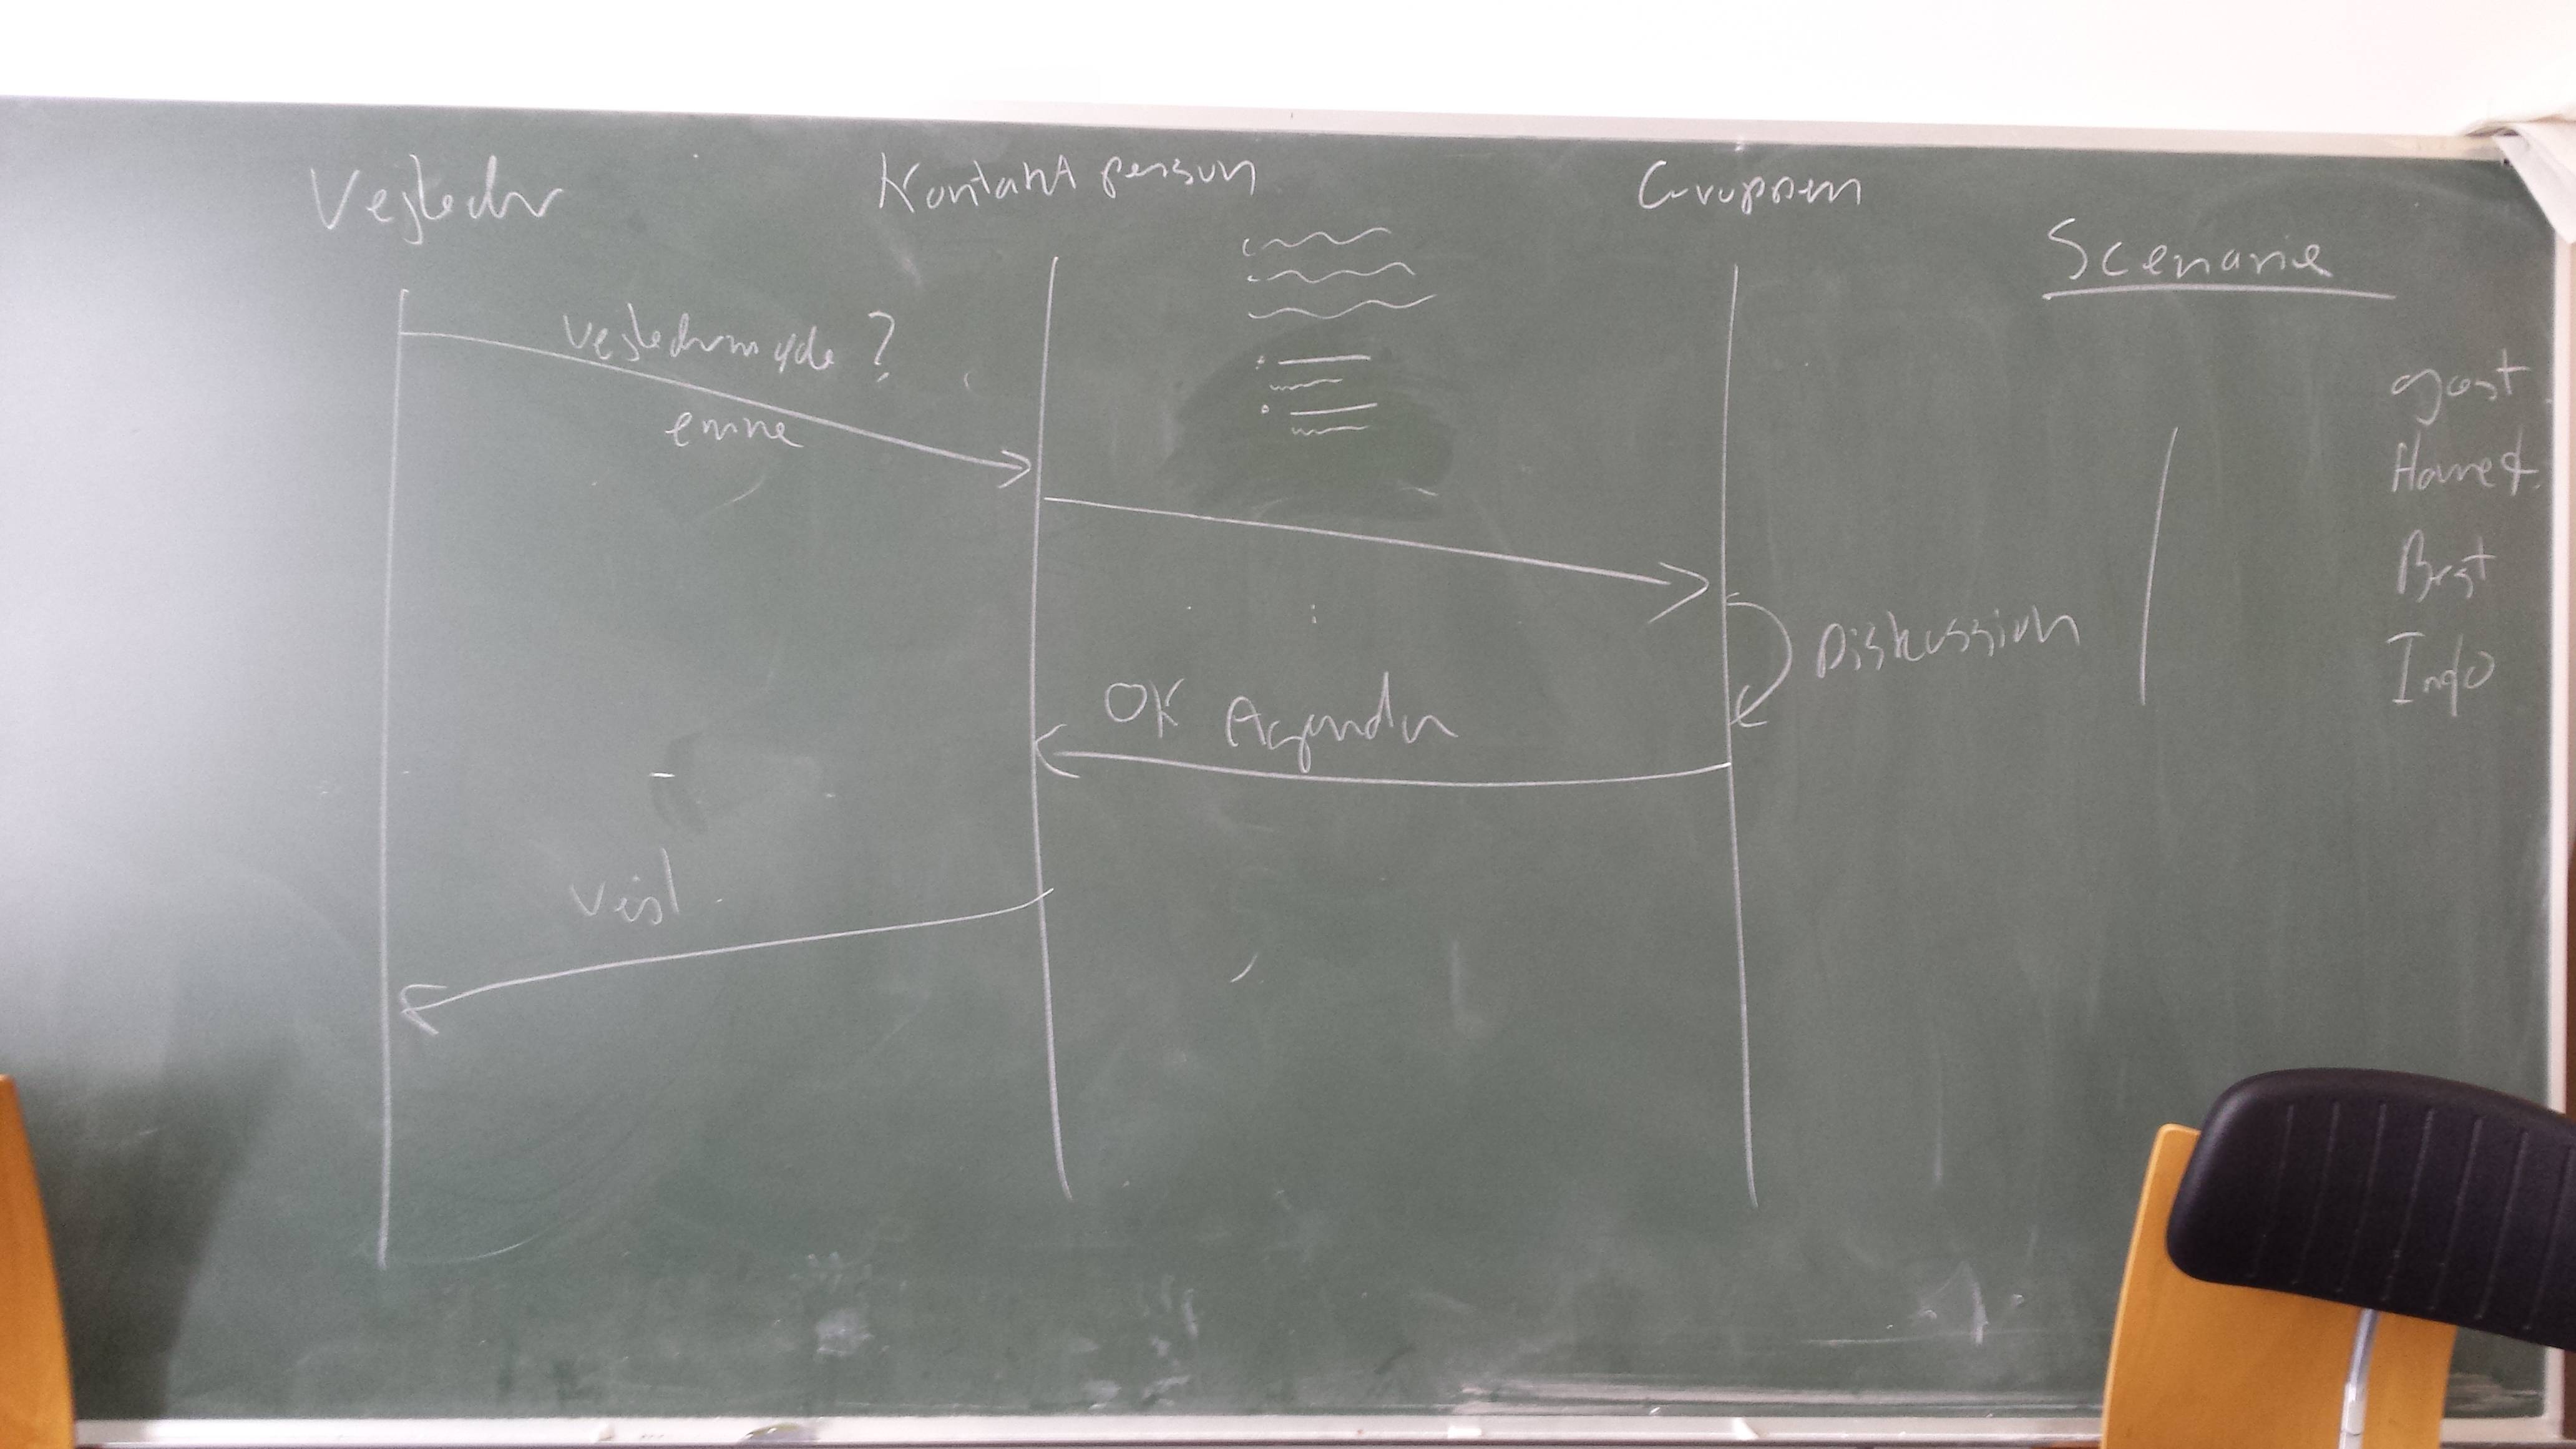 Vejleder
Kontakt person
Gruppen
Scenarie
vejledermøde ?
emne
Diskussion
OK Agenda
Vejl.
gæst
Best
Info